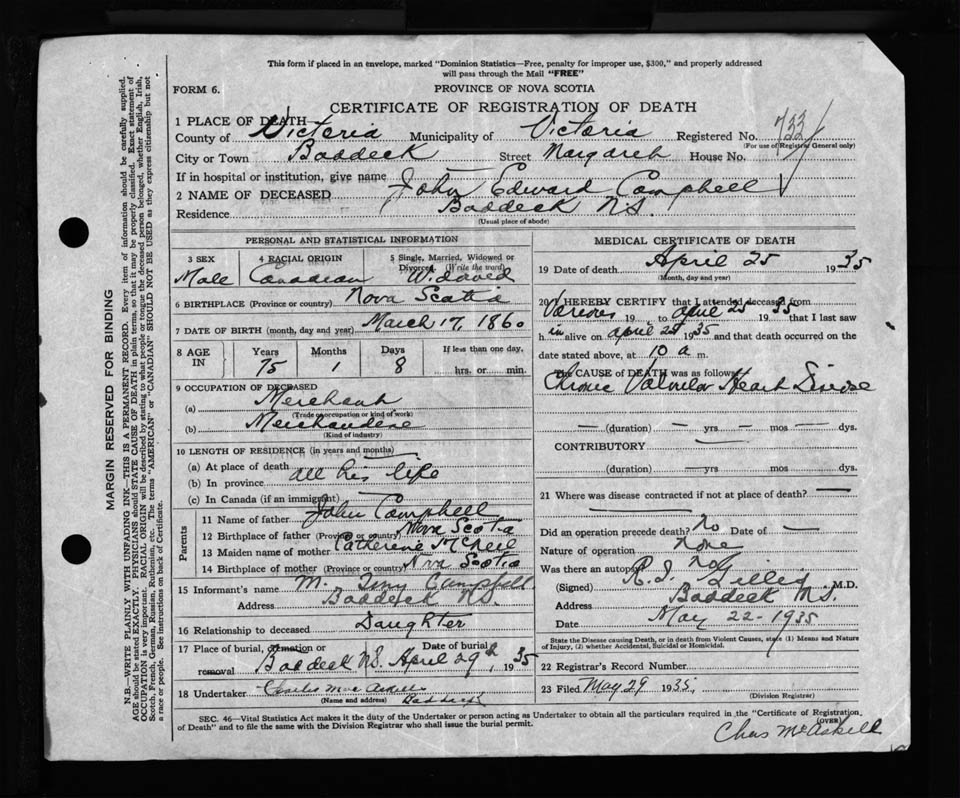 This form if placed in an envelope, marked "Dominion Statistics—Free, penalty for improper use, $300," and properly addressed
will pass through the Mail "FREE"
FORM 6.
PROVINCE OF NOVA SCOTIA
CERTIFICATE OF REGISTRATION OF DEATH
1 PLACE OF DEATH
County of Victoria Municipality of Victoria Registered No. 733
(For use of Registrar General only)
City or Town Baddeck Street Margaret House No.
If in hospital or institution, give name —
2 NAME OF DECEASED John Edward Campbell
Residence Baddeck N.S.
(Usual place of abode)
PERSONAL AND STATISTICAL INFORMATION
3 SEX 4 RACIAL ORIGIN 5 Single, Married, Widowed or
Divorced (Write the word)
Male Canadian Widowed
6 BIRTHPLACE (Province or country) Nova Scotia
7 DATE OF BIRTH (month, day and year) March 17, 1860
8 AGE IN Years Months Days If less than one day,
75 1 8 hrs. or min.
9 OCCUPATION OF DECEASED
(a) Merchant
(Trade or occupation or kind of work)
(b) Merchandise
(Kind of industry)
10 LENGTH OF RESIDENCE (in years and months)
(a) At place of death
(b) In province all his life
(c) In Canada (if an immigrant) —
Parents
11 Name of father John Campbell
12 Birthplace of father (Province or country) Nova Scotia
13 Maiden name of mother Catherine McNeil
14 Birthplace of mother (Province or country) Nova Scotia
15 Informant's name M. Campbell
Address Baddeck N.S.
16 Relationship to deceased Daughter
17 Place of burial, cremation or Date of burial
removal Baddeck N.S. April 29th, 1935
18 Undertaker Charles MacAskill
(Name and address) Baddeck
MEDICAL CERTIFICATE OF DEATH
19 Date of death April 25 1935
(Month, day and year)
20 I HEREBY CERTIFY that I attended deceased from
Various 19 to april 25 1935 that I last saw
h im alive on april 25 1935 and that death occurred on the
date stated above, at 10 a m.
The CAUSE of DEATH was as follows:
Chronic Valvular Heart Disease
— (duration) — yrs — mos — dys.
CONTRIBUTORY —
(duration) — yrs mos dys.
21 Where was disease contracted if not at place of death? —
Did an operation precede death? No Date of —
Nature of operation none
Was there an autopsy No
(Signed) Gillis M.D.
Address Baddeck N.S.
Date May 22-1935
State the Disease causing Death, or in death from Violent Causes, state (1) Means and Nature
of Injury, (2) whether Accidental, Suicidal or Homicidal.
22 Registrar's Record Number
23 Filed May 29 1935.
(Division Registrar)
Chas McAskill
SEC. 46—Vital Statistics Act makes it the duty of the Undertaker or person acting as Undertaker to obtain all the particulars required in the "Certificate of Registration
of Death" and to file the same with the Division Registrar who shall issue the burial permit.
(OVER)
MARGIN RESERVED FOR BINDING
N.B.—WRITE PLAINLY WITH UNFADING INK—THIS IS A PERMANENT RECORD. Every item of information should be carefully supplied.
AGE should be stated EXACTLY. PHYSICIANS should STATE CAUSE OF DEATH in plain terms, so that it may be properly classified. Exact statement of
OCCUPATION is very important. RACIAL ORIGIN will be described by stating to what people or tongue the deceased person belonged, whether English, Irish,
Scotch, French, German, Russian, Ruthenian, etc. The terms "AMERICAN" or "CANADIAN" SHOULD NOT BE USED as they express citizenship but not
a race or people. See instructions on back of Certificate.